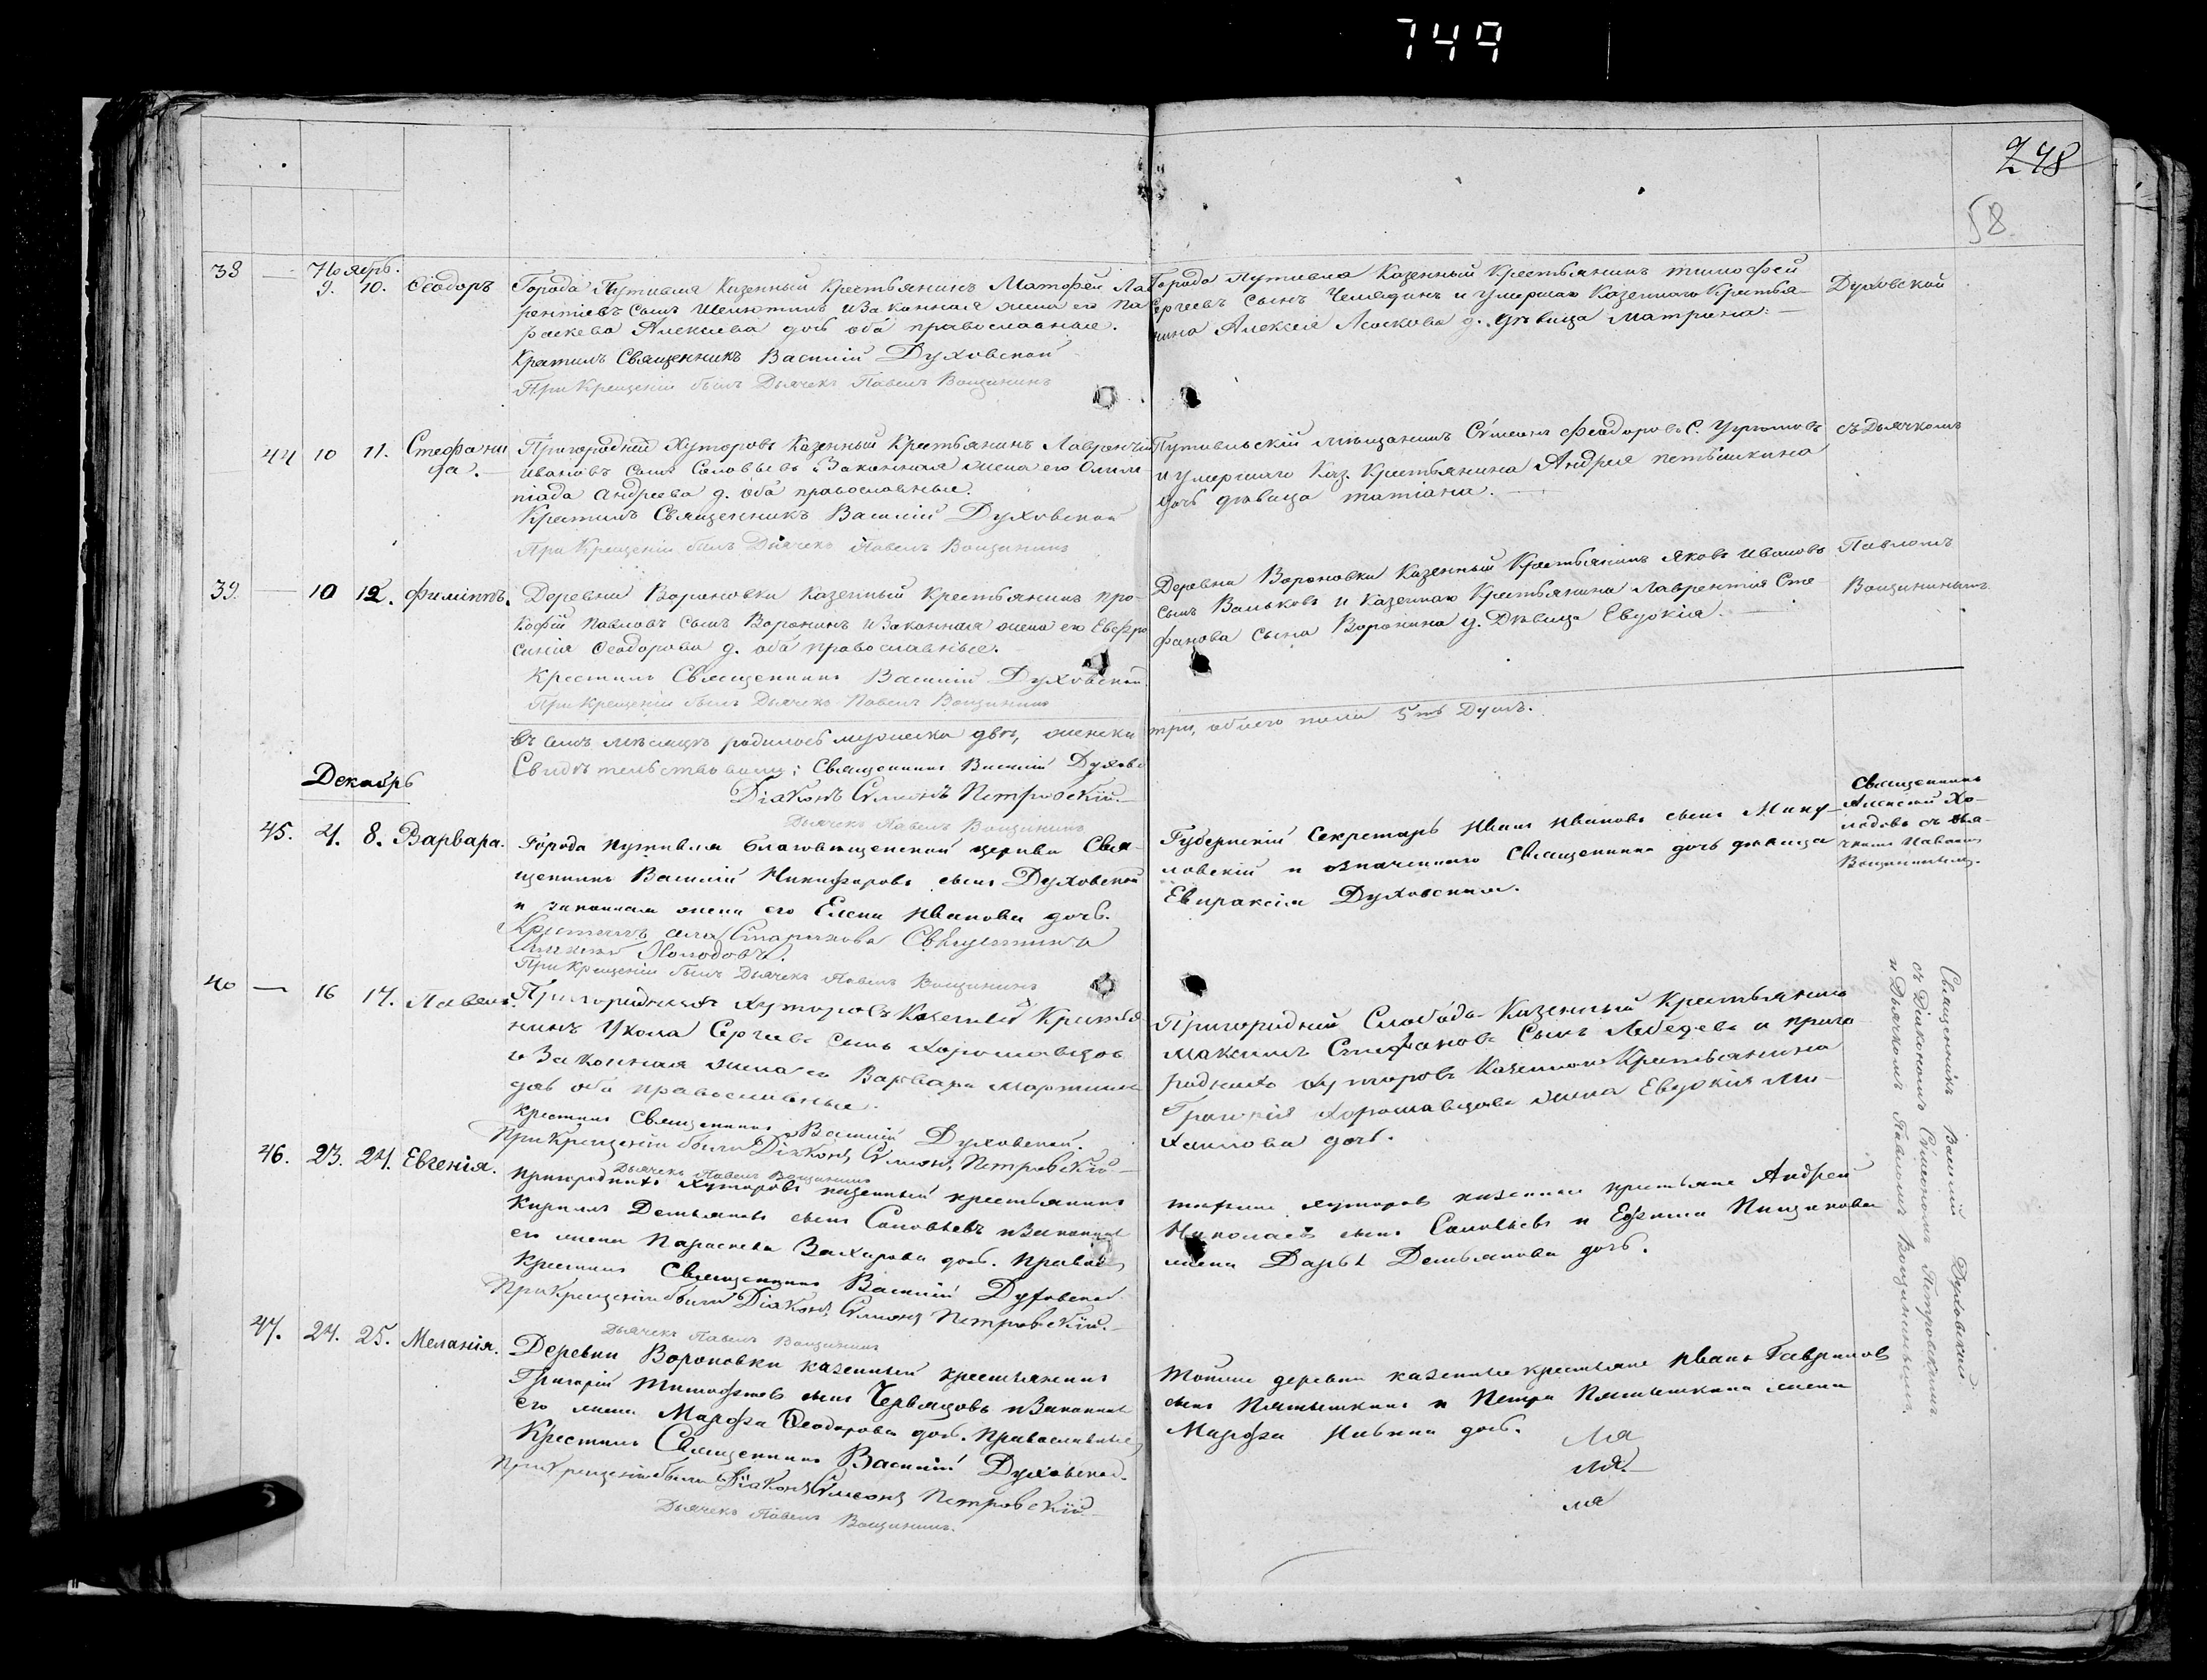 749
248
58
Ноябрь.
38 — 9. 10. Ѳеодоръ
Города Путивля Казенный Крестьянинъ Матѳей Лав
рентіевъ сынъ Шелютинъ и Законная жена его Па
раскева Алексѣева дочь оба православные.
Крестилъ Священникъ Василій Духовской
При Крещеніи былъ Дьячекъ Павелъ Вощининъ
Города Путивля Казенный Крестьянинъ тимофей
Сергеевъ Сынъ Челядинъ и умершаго Казеннаго Крестья-
нина Алексея Лоскова д. дѣвица Матрона.
Духовской
44 10 11. Стефани
да.
Пригородній Хуторовъ Казенный Крестьянинъ Лаврентій
Ивановъ Сынъ Соловьевъ Законная жена его Олим
піада Андреева д. оба православные.
Крестилъ Священникъ Василій Духовской
При Крещеніи былъ Дьячекъ Павелъ Вощининъ
Путивльскій мѣщанинъ Сѵмеонъ Феодоровъ С.
и умершаго Каз. Крестьянина Андрея петѣшкина
дочь дѣвица татіана.
съ Дьячкомъ
39. — 10 12. Филиппъ.
Деревни Вороновки Казенный Крестьянинъ Про-
кофій Павловъ сынъ Воронинъ и Законная жена его Евфро
синія Ѳеодорова д. оба православные.
Крестилъ Священникъ Василій Духовской.
При Крещеніи былъ Дьячекъ Павелъ Вощининъ
Деревни Вороновки Казенный Крестьянинъ Яковъ Ивановъ
сынъ Вальковъ и Казеннаго Крестьянина Лаврентія Сте
фанова сына Воронина д. Дѣвица Евдокія.
Павломъ
Вощининымъ.
Въ семъ мѣсяцѣ родилось мужеска двѣ, женска
три, обоего пола 5ть Душъ.
Свидѣтельствовали: Священникъ Василій Духовс
Діаконъ Сѵмеонъ Петровскій.
Дьячекъ Павелъ Вощининъ
Декабрь
45. 4. 8. Варвара.
Города Путивля Благовѣщенской церкви Свя-
щенникъ Василій Никифоровъ сынъ Духовской
и законная жена его Елена Иванова дочь.
Крестилъ села Старикова Священникъ
Алексѣй Холодовъ.
При Крещеніи былъ Дьячекъ Павелъ Вощининъ
Губернскій Секретарь Иванъ Ивановъ сынъ Мику-
ловскій и означеннаго Священника дочь дѣвица
Евпраксія Духовская.
Священникъ
Алексѣй Хо-
лодовъ съ Дья-
чкомъ Павломъ
Вощининымъ.
40 — 16 17. Павелъ.
Пригородныхъ Хуторовъ Казенный Крестья
нинъ Сергеевъ сынъ Хорошавцовъ
и Законная жена его Варвара Мартинова
дочь оба православные.
Крестилъ Священникъ Василій Духовской.
При Крещеніи были Діаконъ Сѵмеонъ Петровскій.
Дьячекъ Павелъ Вощининъ
Пригородній Слободы Казенный Крестьянинъ
Максимъ Стефановъ Сынъ Лебедевъ и приго
роднихъ Хуторовъ Казеннаго Крестьянина
Григорія Хорошавцова жена Евдокія Ми-
хаилова дочь.
Священникъ Василій Духовскій
съ Діакономъ Сѵмеономъ Петровскимъ
и Дьячкомъ Павломъ Вощининымъ.
46. 23. 24. Евгенія.
Пригородныхъ Хуторовъ казенный крестьянинъ
Кириллъ Демьяновъ сынъ Соловьевъ и Законная
его жена Параскева Захарова дочь. Правос
Крестилъ Священникъ Василій Духовской.
При Крещеніи были Діаконъ Сѵмеонъ Петровскій.
Дьячекъ Павелъ Вощининъ
хуторовъ казенные крестьяне Андрей
Николаевъ сынъ Соловьевъ и Ефима Пищикова
жена Дарья Демьянова дочь.
47. 24. 25. Меланія.
Деревни Вороновки казенный крестьянинъ
Григорій Тимофеевъ сынъ Червяцовъ и Законная
его жена Марфа Ѳеодорова дочь. Православные
Крестилъ Священникъ Василій Духовской.
При Крещеніи были Діаконъ Сѵмеонъ Петровскій.
Дьячекъ Павелъ Вощининъ.
Тойже деревни казенные крестьяне Иванъ Гавриловъ
сынъ Пятышкинъ и Петра Пятышкина жена
Марфа дочь.
ля
ля.
ля
5